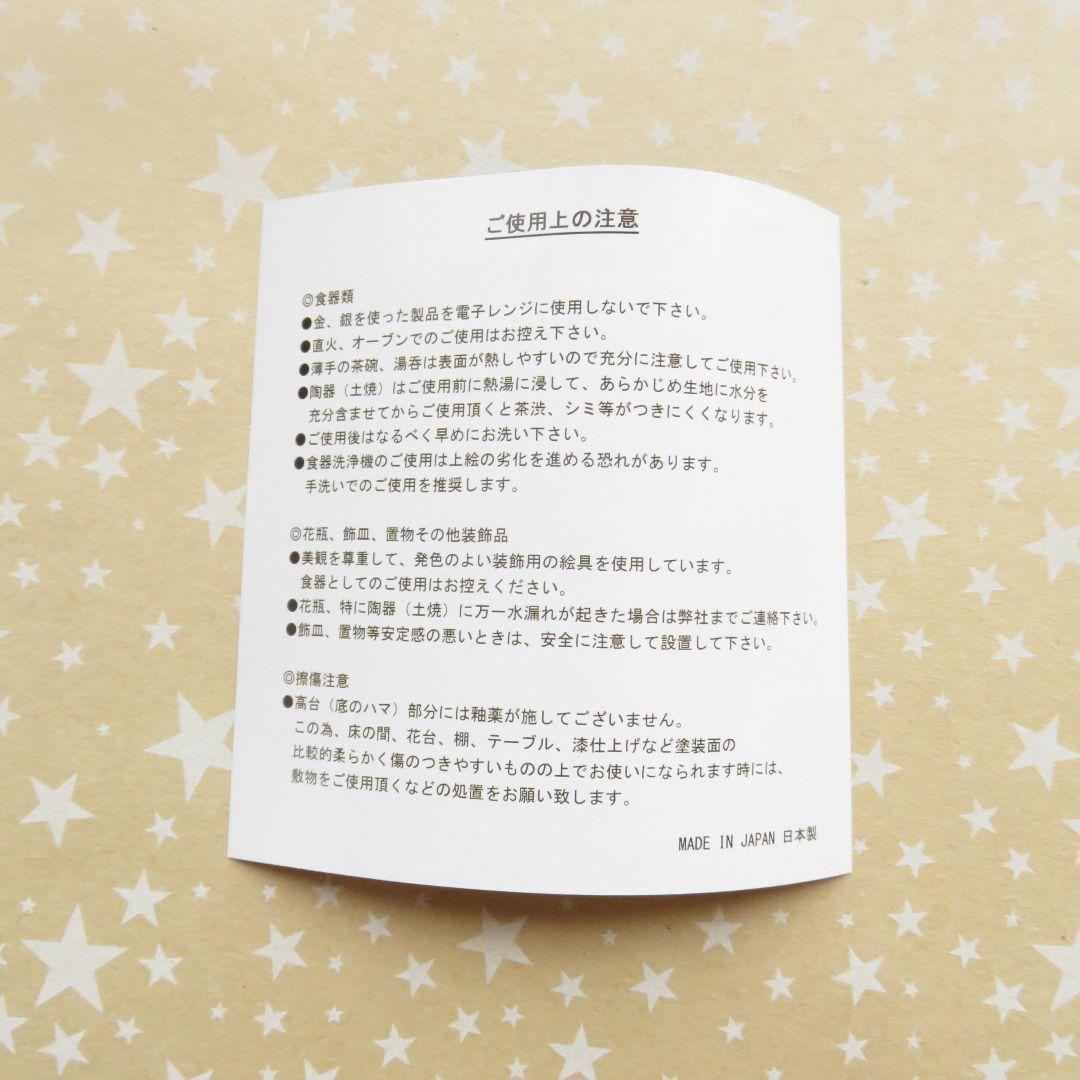 ご使用上の注意
◎食器類
●金、銀を使った製品を電子レンジに使用しないで下さい。
●直火、オーブンでのご使用はお控え下さい。
●薄手の茶碗、湯呑は表面が熱しやすいので充分に注意してご使用下さい。
●陶器（土焼）はご使用前に熱湯に浸して、あらかじめ生地に水分を
充分含ませてからご使用頂くと茶渋、シミ等がつきにくくなります。
●ご使用後はなるべく早めにお洗い下さい。
●食器洗浄機のご使用は上絵の劣化を進める恐れがあります。
手洗いでのご使用を推奨します。
◎花瓶、飾皿、置物その他装飾品
●美観を尊重して、発色のよい装飾用の絵具を使用しています。
食器としてのご使用はお控えください。
●花瓶、特に陶器（土焼）に万一水漏れが起きた場合は弊社までご連絡下さい。
●飾皿、置物等安定感の悪いときは、安全に注意して設置して下さい。
◎擦傷注意
●高台（底のハマ）部分には釉薬が施してございません。
この為、床の間、花台、棚、テーブル、漆仕上げなど塗装面の
比較的柔らかく傷のつきやすいものの上でお使いになられます時には、
敷物をご使用頂くなどの処置をお願い致します。
MADE IN JAPAN 日本製